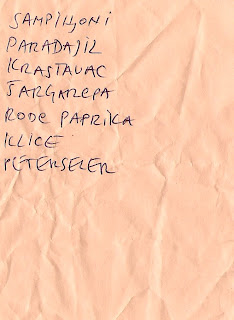 SAMPINJONI
PARADAJZ
KRASTAVAC
ŠARGAREPA
RODE PAPRIKA
KLICE
PETERSELER